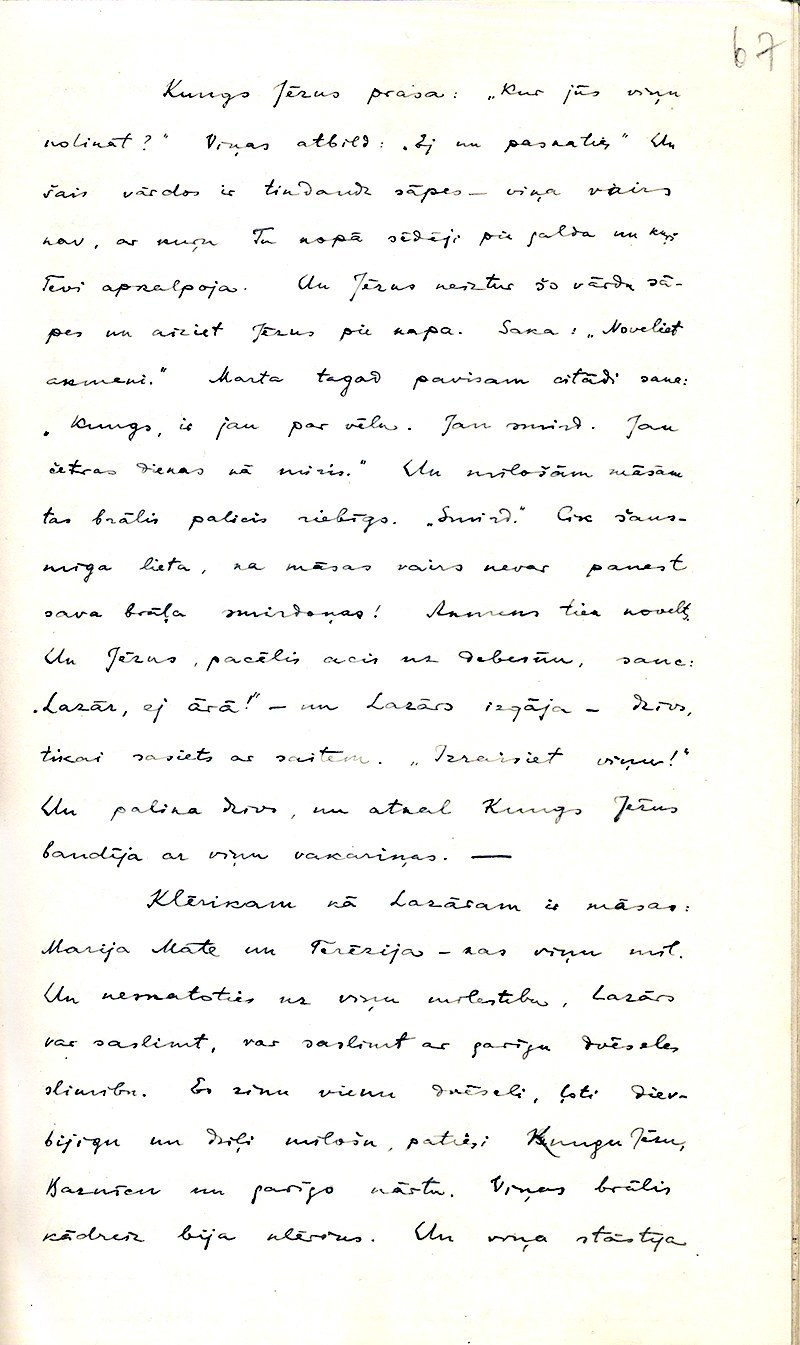 67
Kungs Jēzus prasa: „Kur jūs viņu
nolikāt?" Viņas atbild: „Ej un paskaties" Un
šais vārdos ir tik daudz sāpes – viņa vairs
nav, ar kuŗu Tu kopā sēdēji pie galda un kuŗš
Tevi apkalpoja. Un Jēzus neiztur šo vārdu sā-
pes un aiziet Jēzus pie kapa. Saka: „Noveliet
akmeni." Marta tagad pavisam citādi sauc:
„Kungs, ir jau par vēlu. Jau smird. Jau
četras dienas kā miris." Un mīlošām māsām
tas brālis palicis riebīgs. „Smird." Cik šaus-
mīga lieta, ka māsas vairs nevar panest
sava brāļa smirdoņas! Akmens tiek novelts,
Un Jēzus, pacēlis acis uz debesīm, sauc:
„Lazār, ej ārā!" – un Lazārs izgāja – dzīvs,
tikai sasiets ar saitēm. „Izraisiet viņu!"
Un palika dzīvs, un atkal Kungs Jēzus
baudīja ar viņu vakariņas. —
Klērikam kā Lazāram ir māsas:
Marija Māte un Terēzija – kas viņu mīl.
Un neskatoties uz viņu mīlestību, Lazārs
var saslimt, var saslimt ar garīgu dvēseles
slimību. Es zinu vienu dvēseli, ļoti diev-
bijīgu un dziļi mīlošu, patiesi Kungu Jēzu,
Baznīcu un garīgo kārtu. Viņas brālis
kādreiz bija klēriķis. Un viņa stāstīja